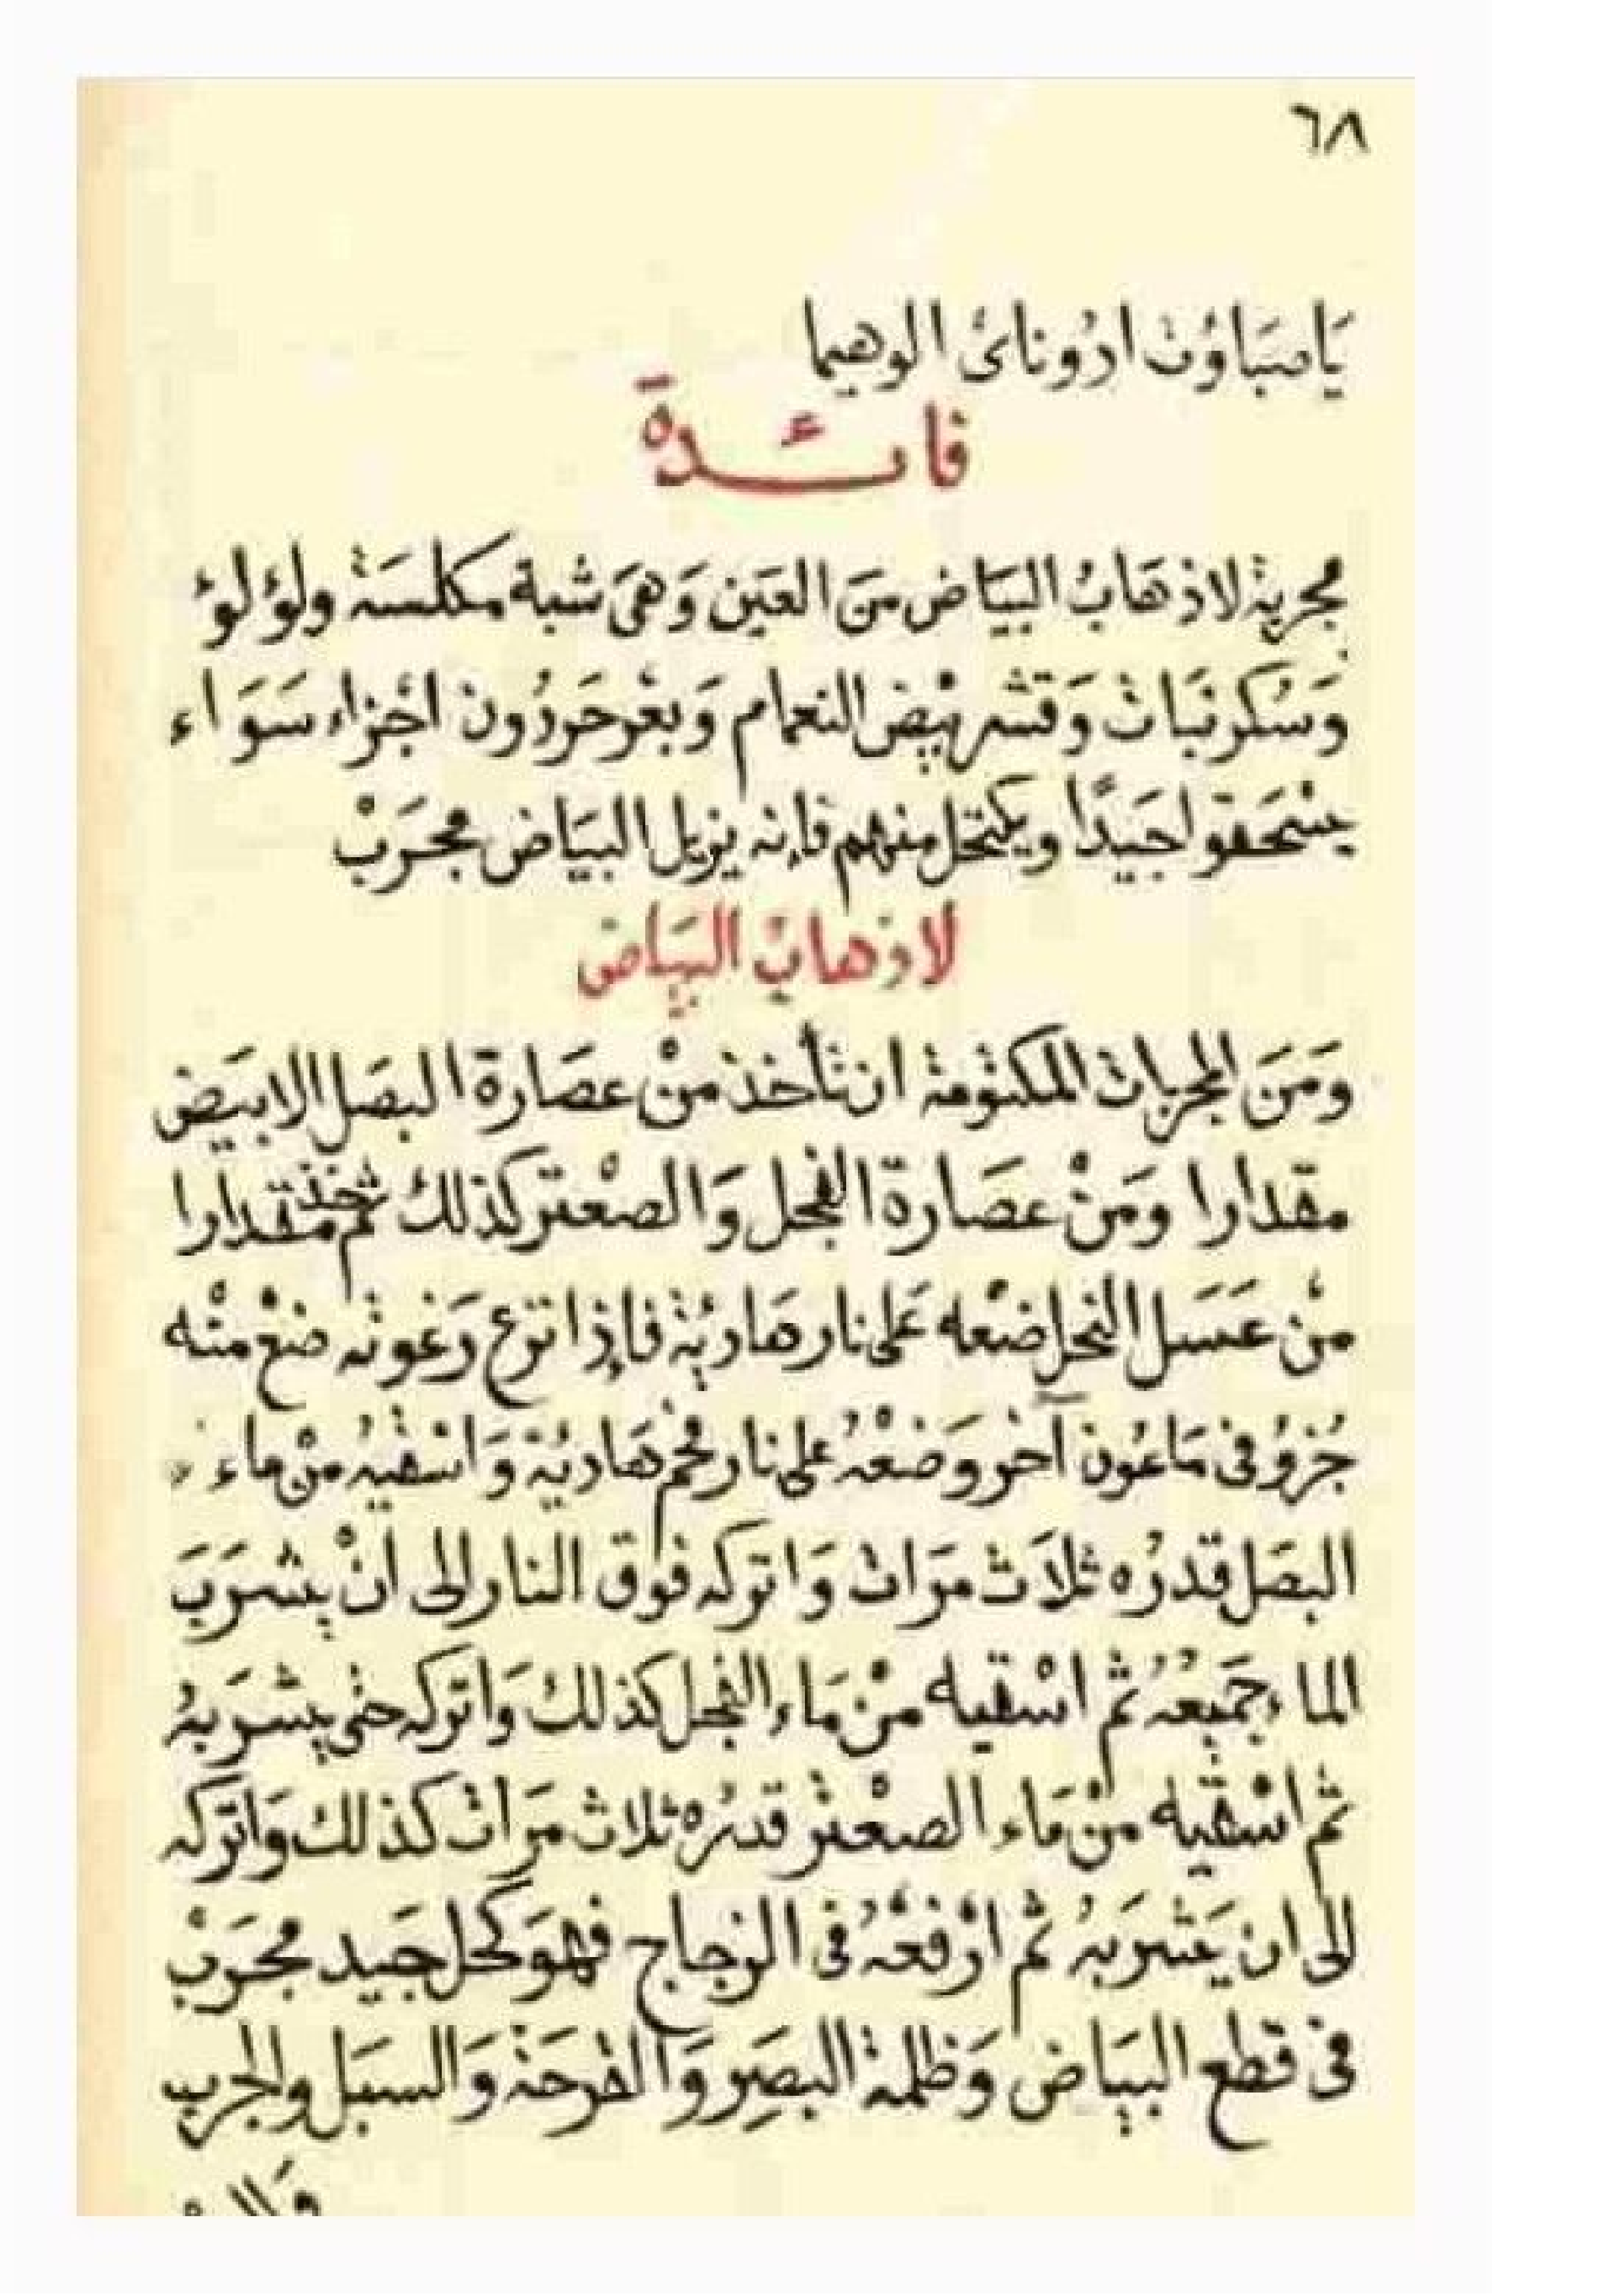 ٦٨
يَاصَبَاؤُت ادُونَاىْ الوهيما
فائدة
مجربة لاذهَابُ البيَاض منَ العَين وَهىَ شبة مكلسَة ولؤلؤ
وَسُكر نبَات وَقشر بيْض النعام وَبعْر حَردُون اجْزاء سَوَاء
يسْحَقوا جَيدًا ويكتحل منهم فإنه يزيل البيَاض مجرَبْ
لاذهابْ البيَاض
ومَنَ المجربات المكتومة ان تأخذ منْ عصَارة البصَل الابيَض
مقدارا ومَنْ عصَارة الفجل وَالصعْتر كذلك ثم خذ مقدارا
منْ عَسَل النحل ضعْه عَلى نار هَاديَة فإذا نزع رَغوته ضعْ منْه
جُزؤ فى مَاعُون آخر وَضعْهُ على نار فحْم هَاديَة وَاسْقيهُ منْ ماء
البصَل قدرُه ثلاَث مرَات وَاتركه فوْق النار الى انْ يشرَبَ
الماء جَميعُهُ ثم اسْقيه منْ مَاء الفجل كذلكْ وَاتركه حتى يشرَبهُ
ثم اسْقيه منْ مَاء الصعْتر قدرُه ثلاث مرَات كذلك وَاتركه
الى ان يَشرَبهُ ثم ارْفعْهُ فى الزجاج فهوَ كحل جَيد مجرَبْ
فى قطع البيَاض وَظلمة البصَر وَالقرحَة وَالسبَل والجرب